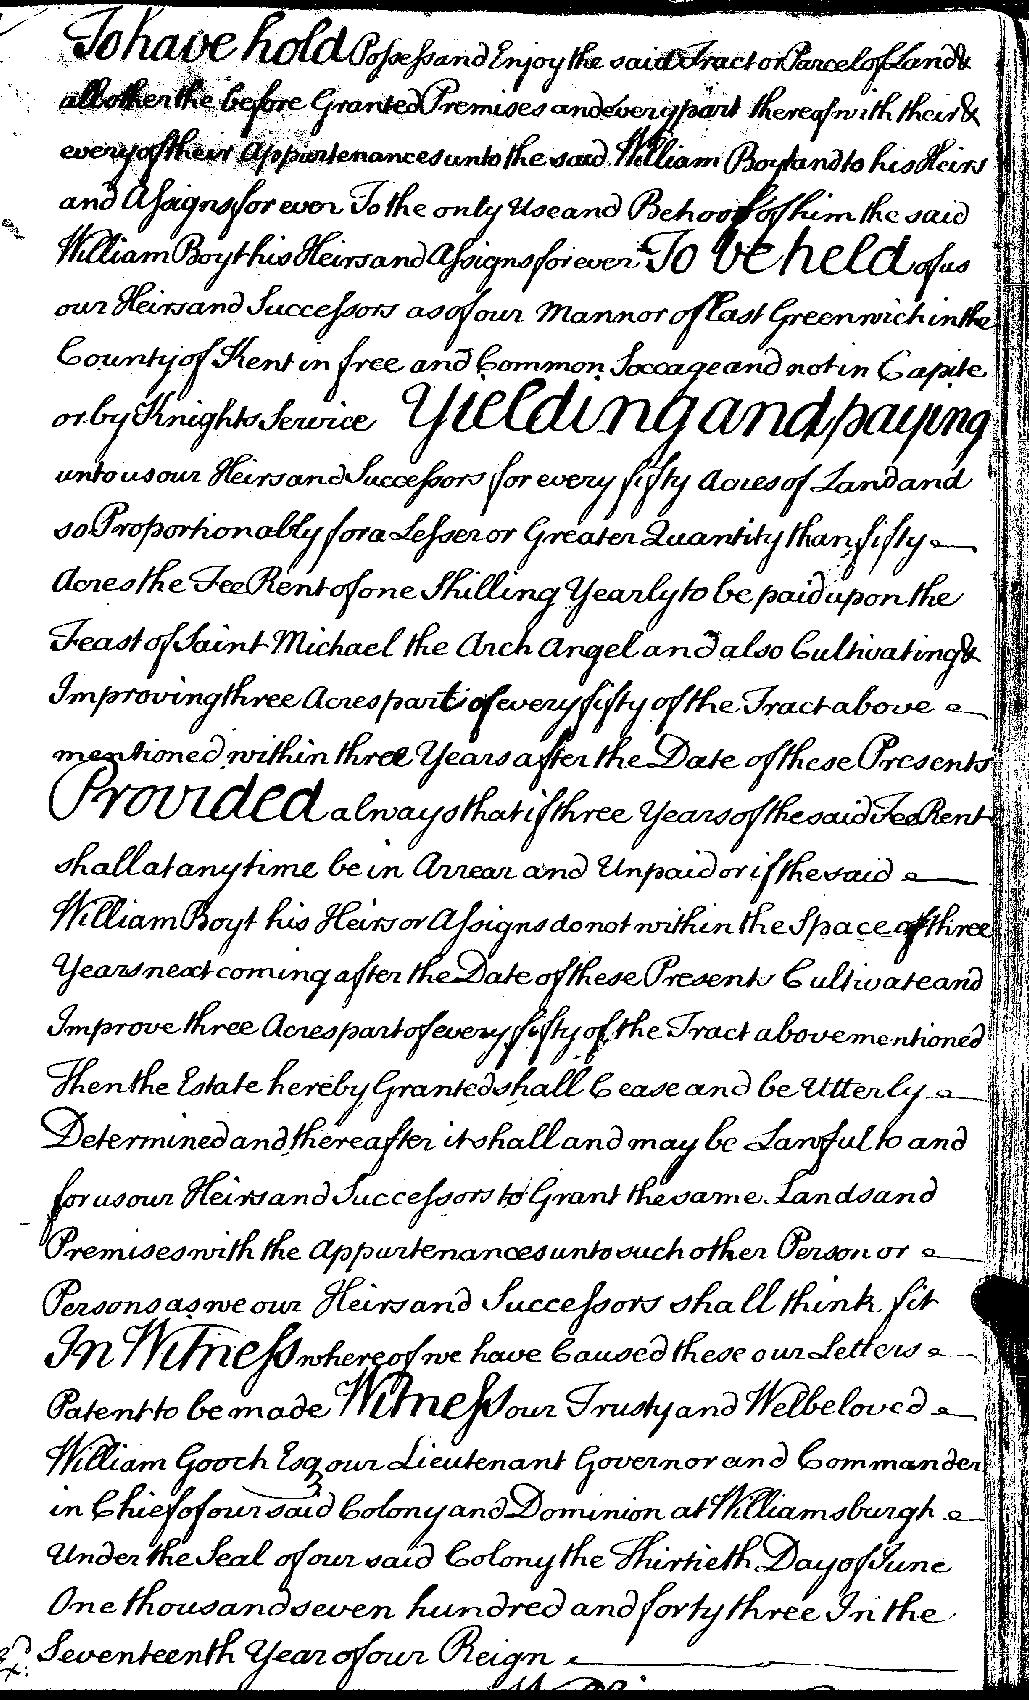 To have hold Possess and Enjoy the said Tract or Parcel of Land &
all other the before Granted Premises and every part thereof with their &
every of their Appurtenances unto the said William Boyt and to his Heirs
and Assigns for ever To the only Use and Behoof of him the said
William Boyt his Heirs and Assigns for ever To be held of us
our Heirs and Successors as of our Mannor of East Greenwich in the
County of Kent in free and Common Soccage and not in Capite
or by Knights Service Yielding and paying
unto us our Heirs and Successors for every fifty Acres of Land and
so Proportionably for a Lesser or Greater Quantity than fifty
Acres the Fee Rent of one Shilling Yearly to be paid upon the
Feast of Saint Michael the Arch Angel and also Cultivating &
Improving three Acres part of every fifty of the Tract above
mentioned within three Years after the Date of these Presents
Provided always that if three Years of the said Fee Rent
shall at any time be in Arrear and Unpaid or if the said
William Boyt his Heirs or Assigns do not within the Space of three
Years next coming after the Date of these Presents Cultivate and
Improve three Acres part of every fifty of the Tract above mentioned
Then the Estate hereby Granted shall Cease and be Utterly
Determined and thereafter it shall and may be Lawful to and
for us our Heirs and Successors to Grant the same Lands and
Premises with the Appurtenances unto such other Person or
Persons as we our Heirs and Successors shall think fit
In Witness whereof we have Caused these our Letters
Patent to be made Witness our Trusty and Welbeloved
William Gooch Esq our Lieutenant Governor and Commander
in Chief of our said Colony and Dominion at Williamsburgh
Under the Seal of our said Colony the Thirtieth Day of June
One thousand seven hundred and forty three In the
Seventeenth Year of our Reign